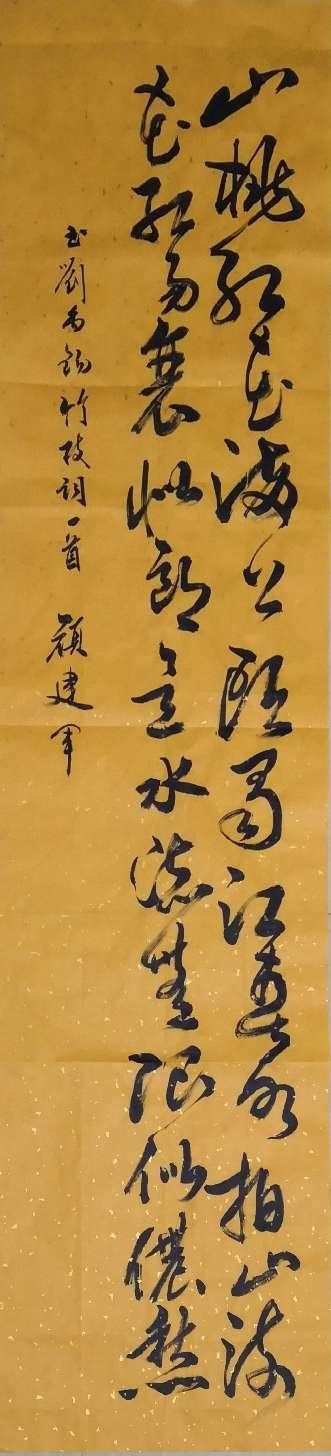 山桃红花满上頭蜀江春水拍山流
花红易衰似郎意水流無限似儂愁
书劉禹錫竹枝詞一首 顏建軍